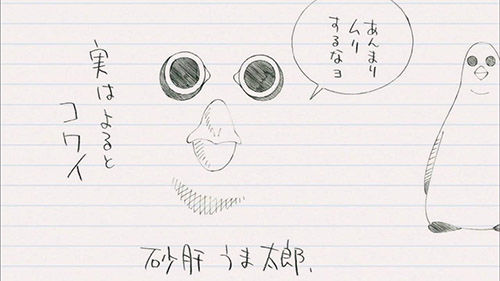 あんまり
ムリ
するなヨ
実はよると
コワイ
砂肝うま太郎、